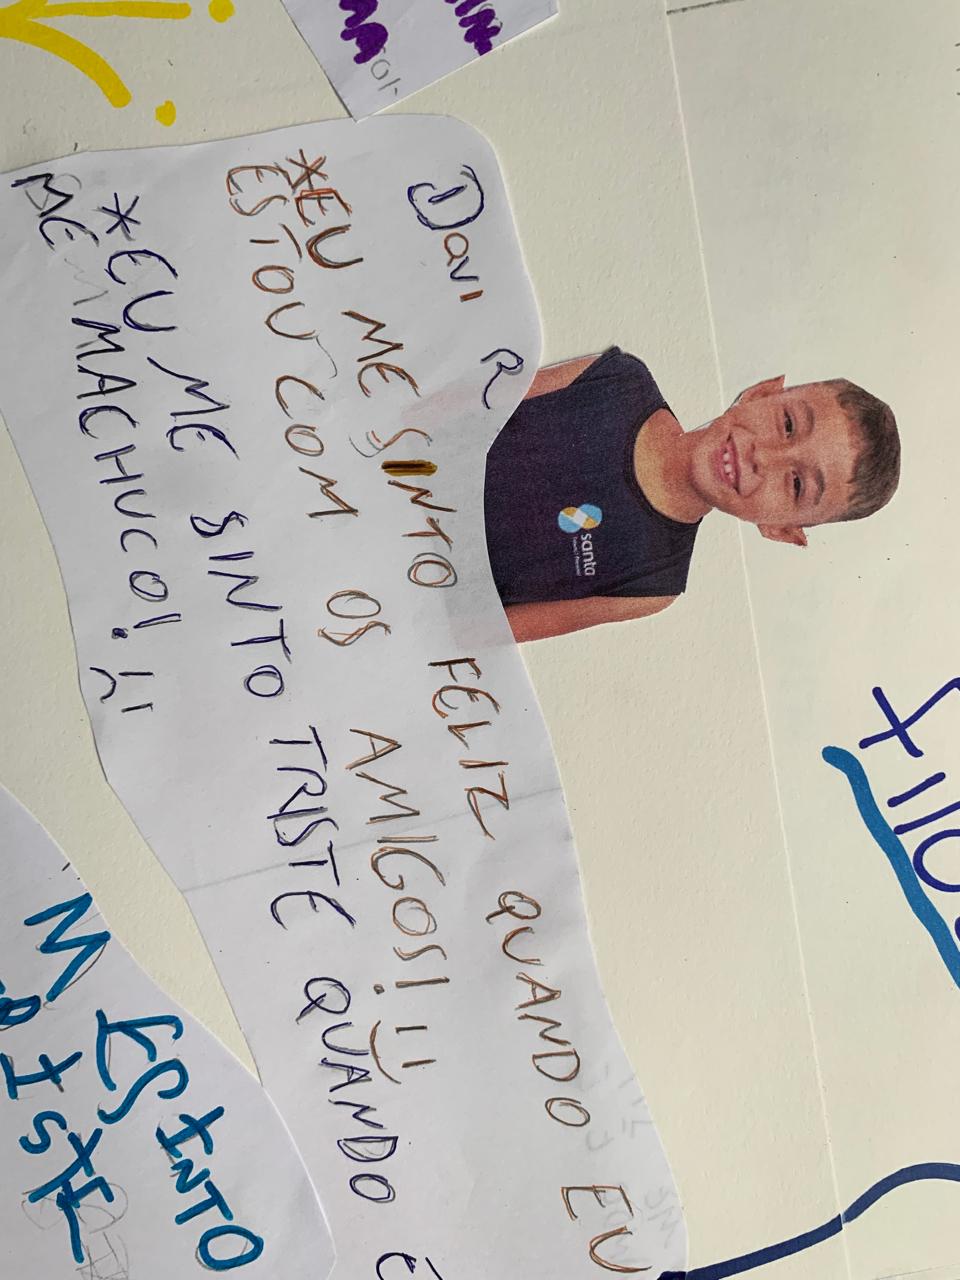 Davi R
*EU ME SINTO FELIZ QUANDO EU
ESTOU COM OS AMIGOS! :)
*EU ME SINTO TRISTE QUANDO E
ME MACHUCO! :(
santa
M ESINTO